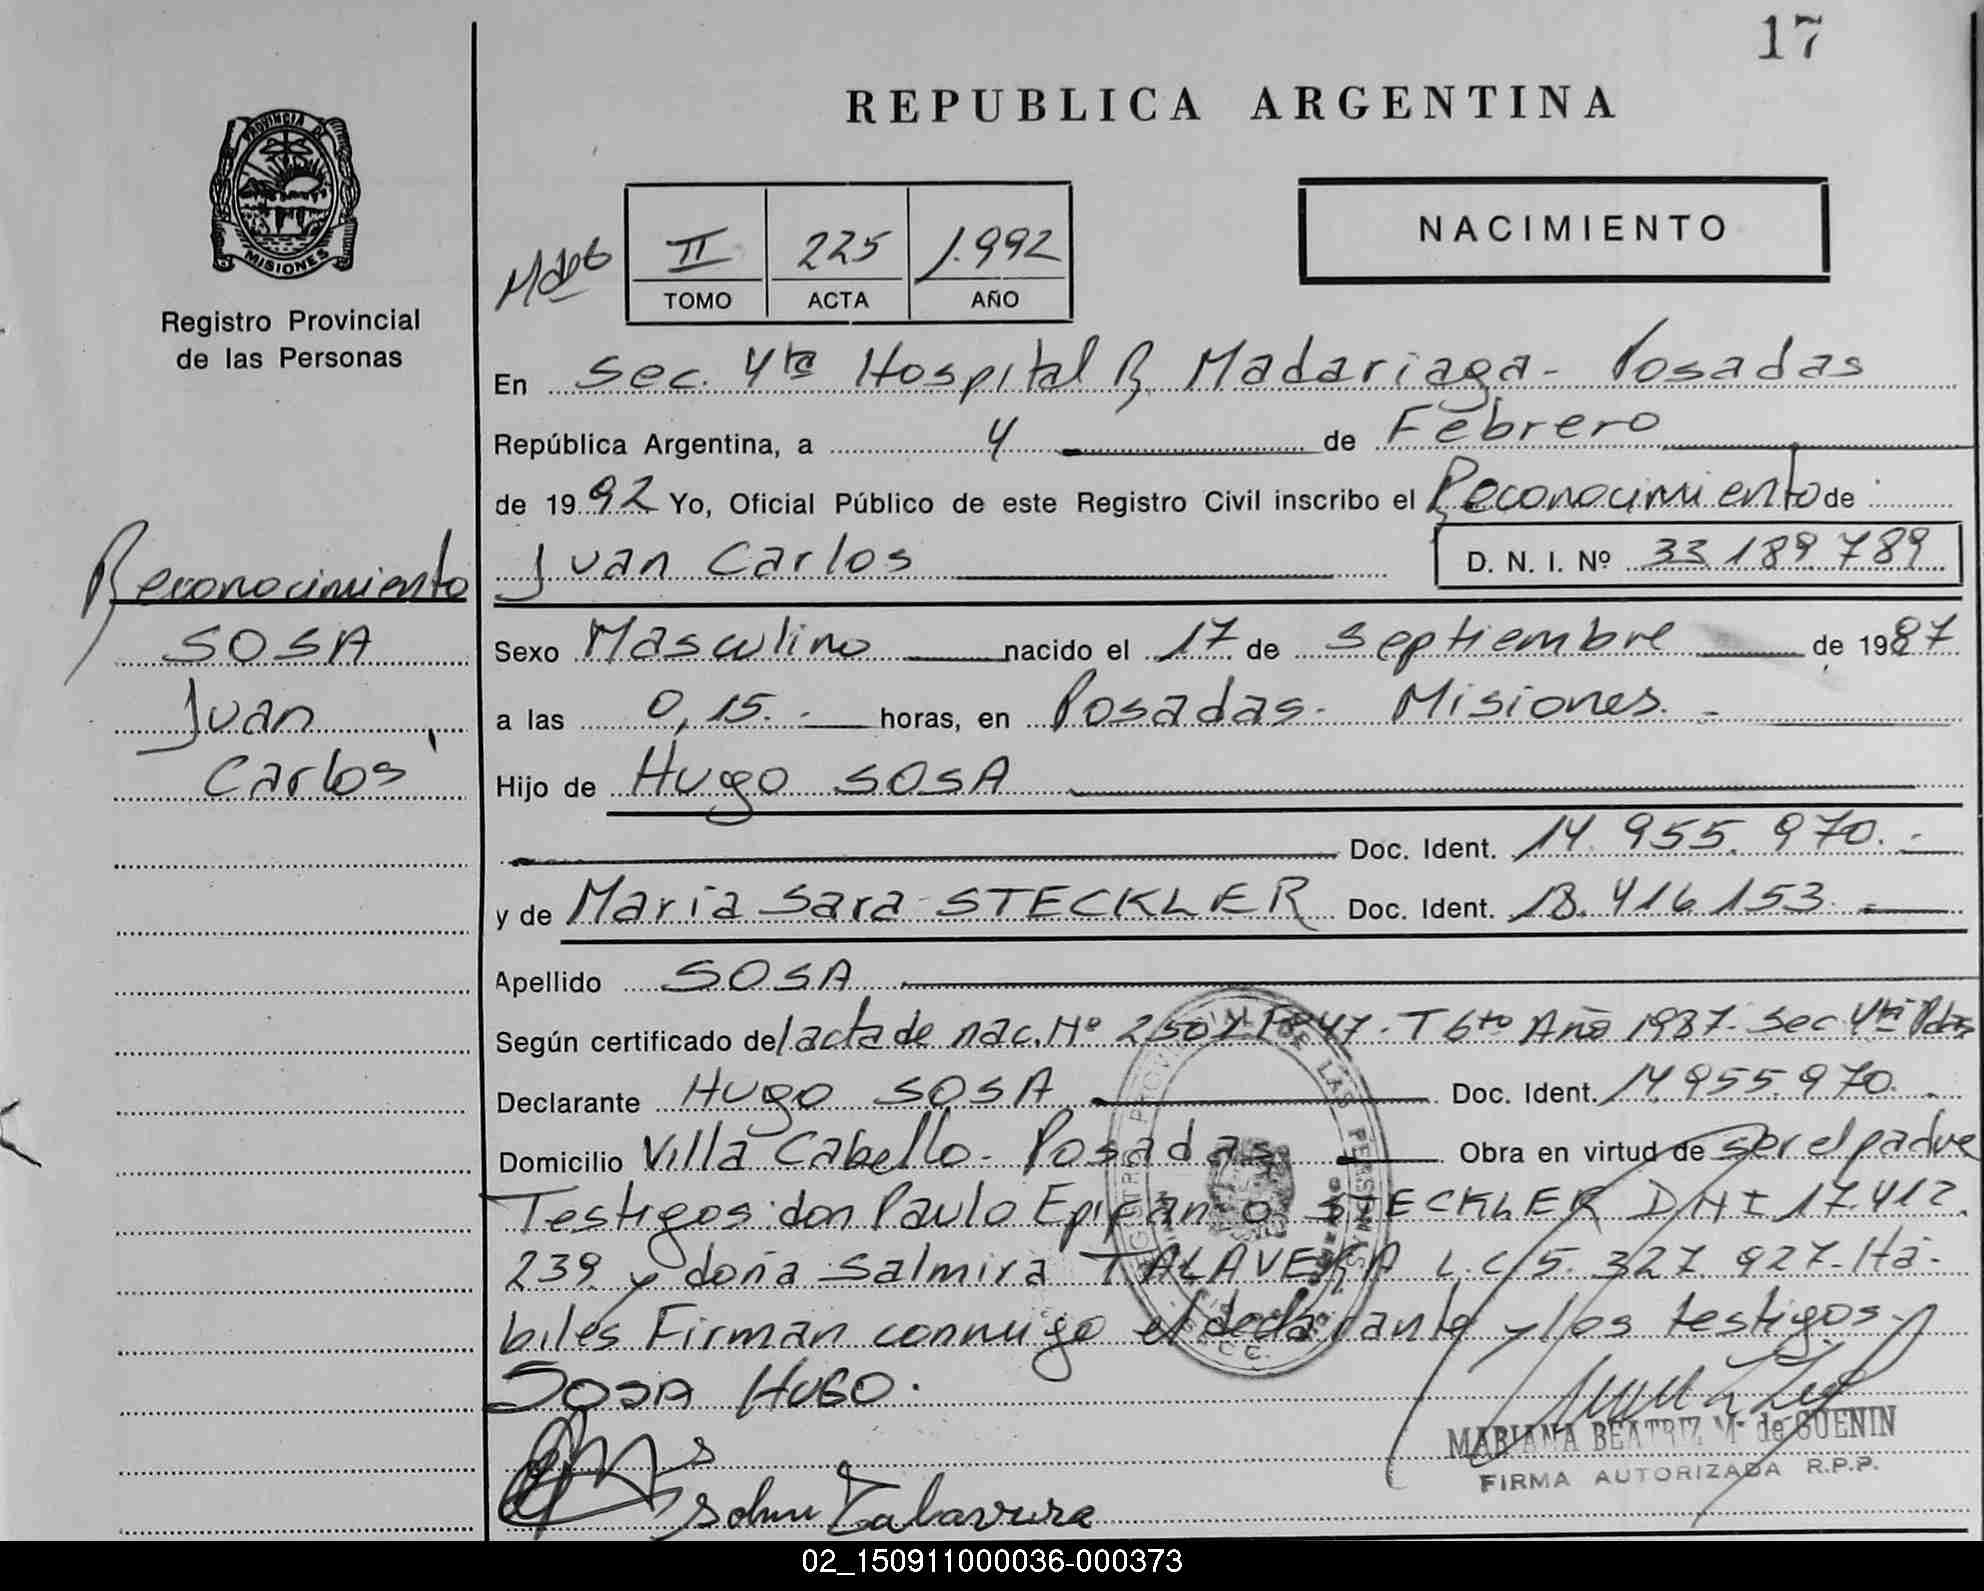 17
REPUBLICA ARGENTINA
PROVINCIA DE
MISIONES
Registro Provincial
de las Personas
NACIMIENTO
II 225 1.992
TOMO ACTA AÑO
En Sec. 4ta Hospital R. Madariaga - Posadas
República Argentina, a 4 de Febrero
de 1992 Yo, Oficial Público de este Registro Civil inscribo el Reconocimiento de
Juan Carlos D. N. I. Nº 33.189.789
Reconocimiento
SOSA
Juan
Carlos
Sexo Masculino nacido el 17 de Septiembre de 1987
a las 0,15.- horas, en Posadas - Misiones.-
Hijo de Hugo SOSA
Doc. Ident. 14.955.970.-
y de María Sara STECKLER Doc. Ident. 18.416.153.
Apellido SOSA
Según certificado del acta de nac. Nº T 6to Año 1987. Sec 4ta Pdas
Declarante Hugo SOSA Doc. Ident. 14.955.970.
Domicilio Villa Cabello - Posadas Obra en virtud de ser el padre
Testigos: don Paulo Epifanio STECKLER DNI 17.412.
239 y doña Salmira TALAVERA L.C. 5.327.927 - Há-
biles Firman conmigo el declarante y los testigos.-
SOSA HUGO.
Talavera
MARIANA BEATRIZ M. de GUENIN
FIRMA AUTORIZADA R.P.P.
02_150911000036-000373